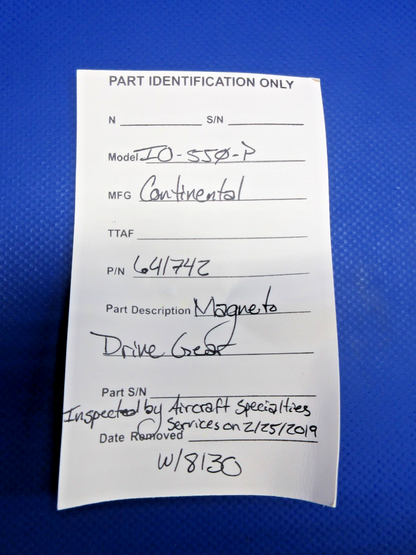 PART IDENTIFICATION ONLY
N S/N
Model IO-550-P
MFG Continental
TTAF
P/N 641742
Part Description Magneto
Drive Gear
Part S/N
Inspected by Aircraft Specialties
Services on 2/25/2019
Date Removed
W/8130